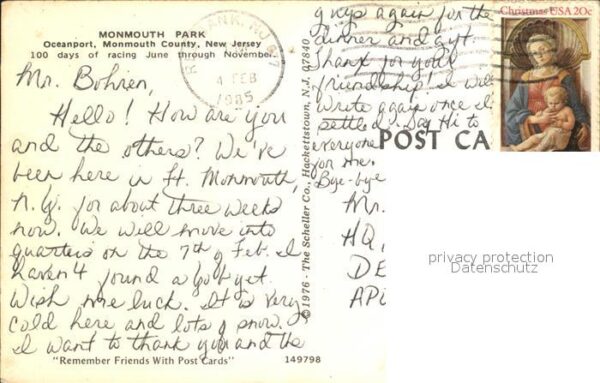 MONMOUTH PARK
Oceanport, Monmouth County, New Jersey
100 days of racing June through November.
Mr. Bohren,
Hello! How are you
and the others? We've
been here in Ft. Monmouth,
N.J. for about three weeks
now. We will move into
quarters on the 7th of Feb. I
haven't found a job yet.
Wish me luck. It is very
cold here and lots of snow.
I want to thank you and the
"Remember Friends With Post Cards"
149798
guys again for the
dinner and gift.
Thank for your
friendship! I will
write again once I'm
settled. Say Hi to
everyone
for me.
Bye-bye
©1976 · The Scheller Co., Hackettstown, N.J. 07840
RED BANK, NJ 077
4 FEB
1985
Christmas USA 20c
POST CA
Mr.
HQ,
DE
AP
privacy protection
Datenschutz